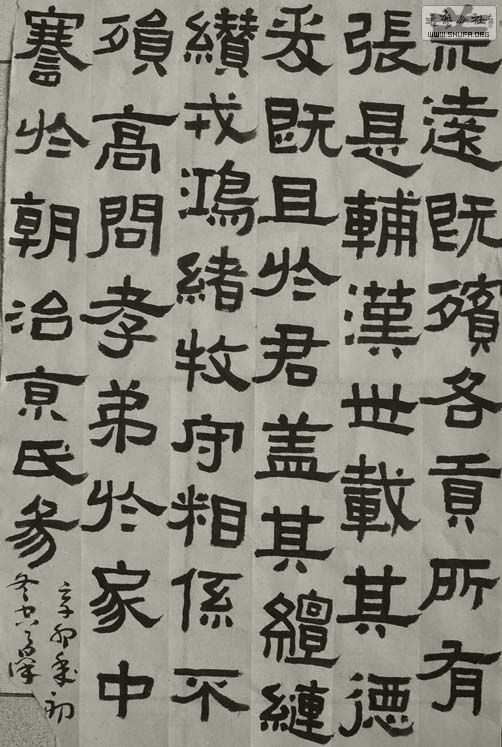 遠既殯各貢所有
張是輔漢世載其德
爰既且於君盖其繵縺
纘戎鴻緒牧守相係不
殞高問孝弟於家中
謇於朝治京氏易
辛卯年初
冬
WWW.SHUFA.ORG